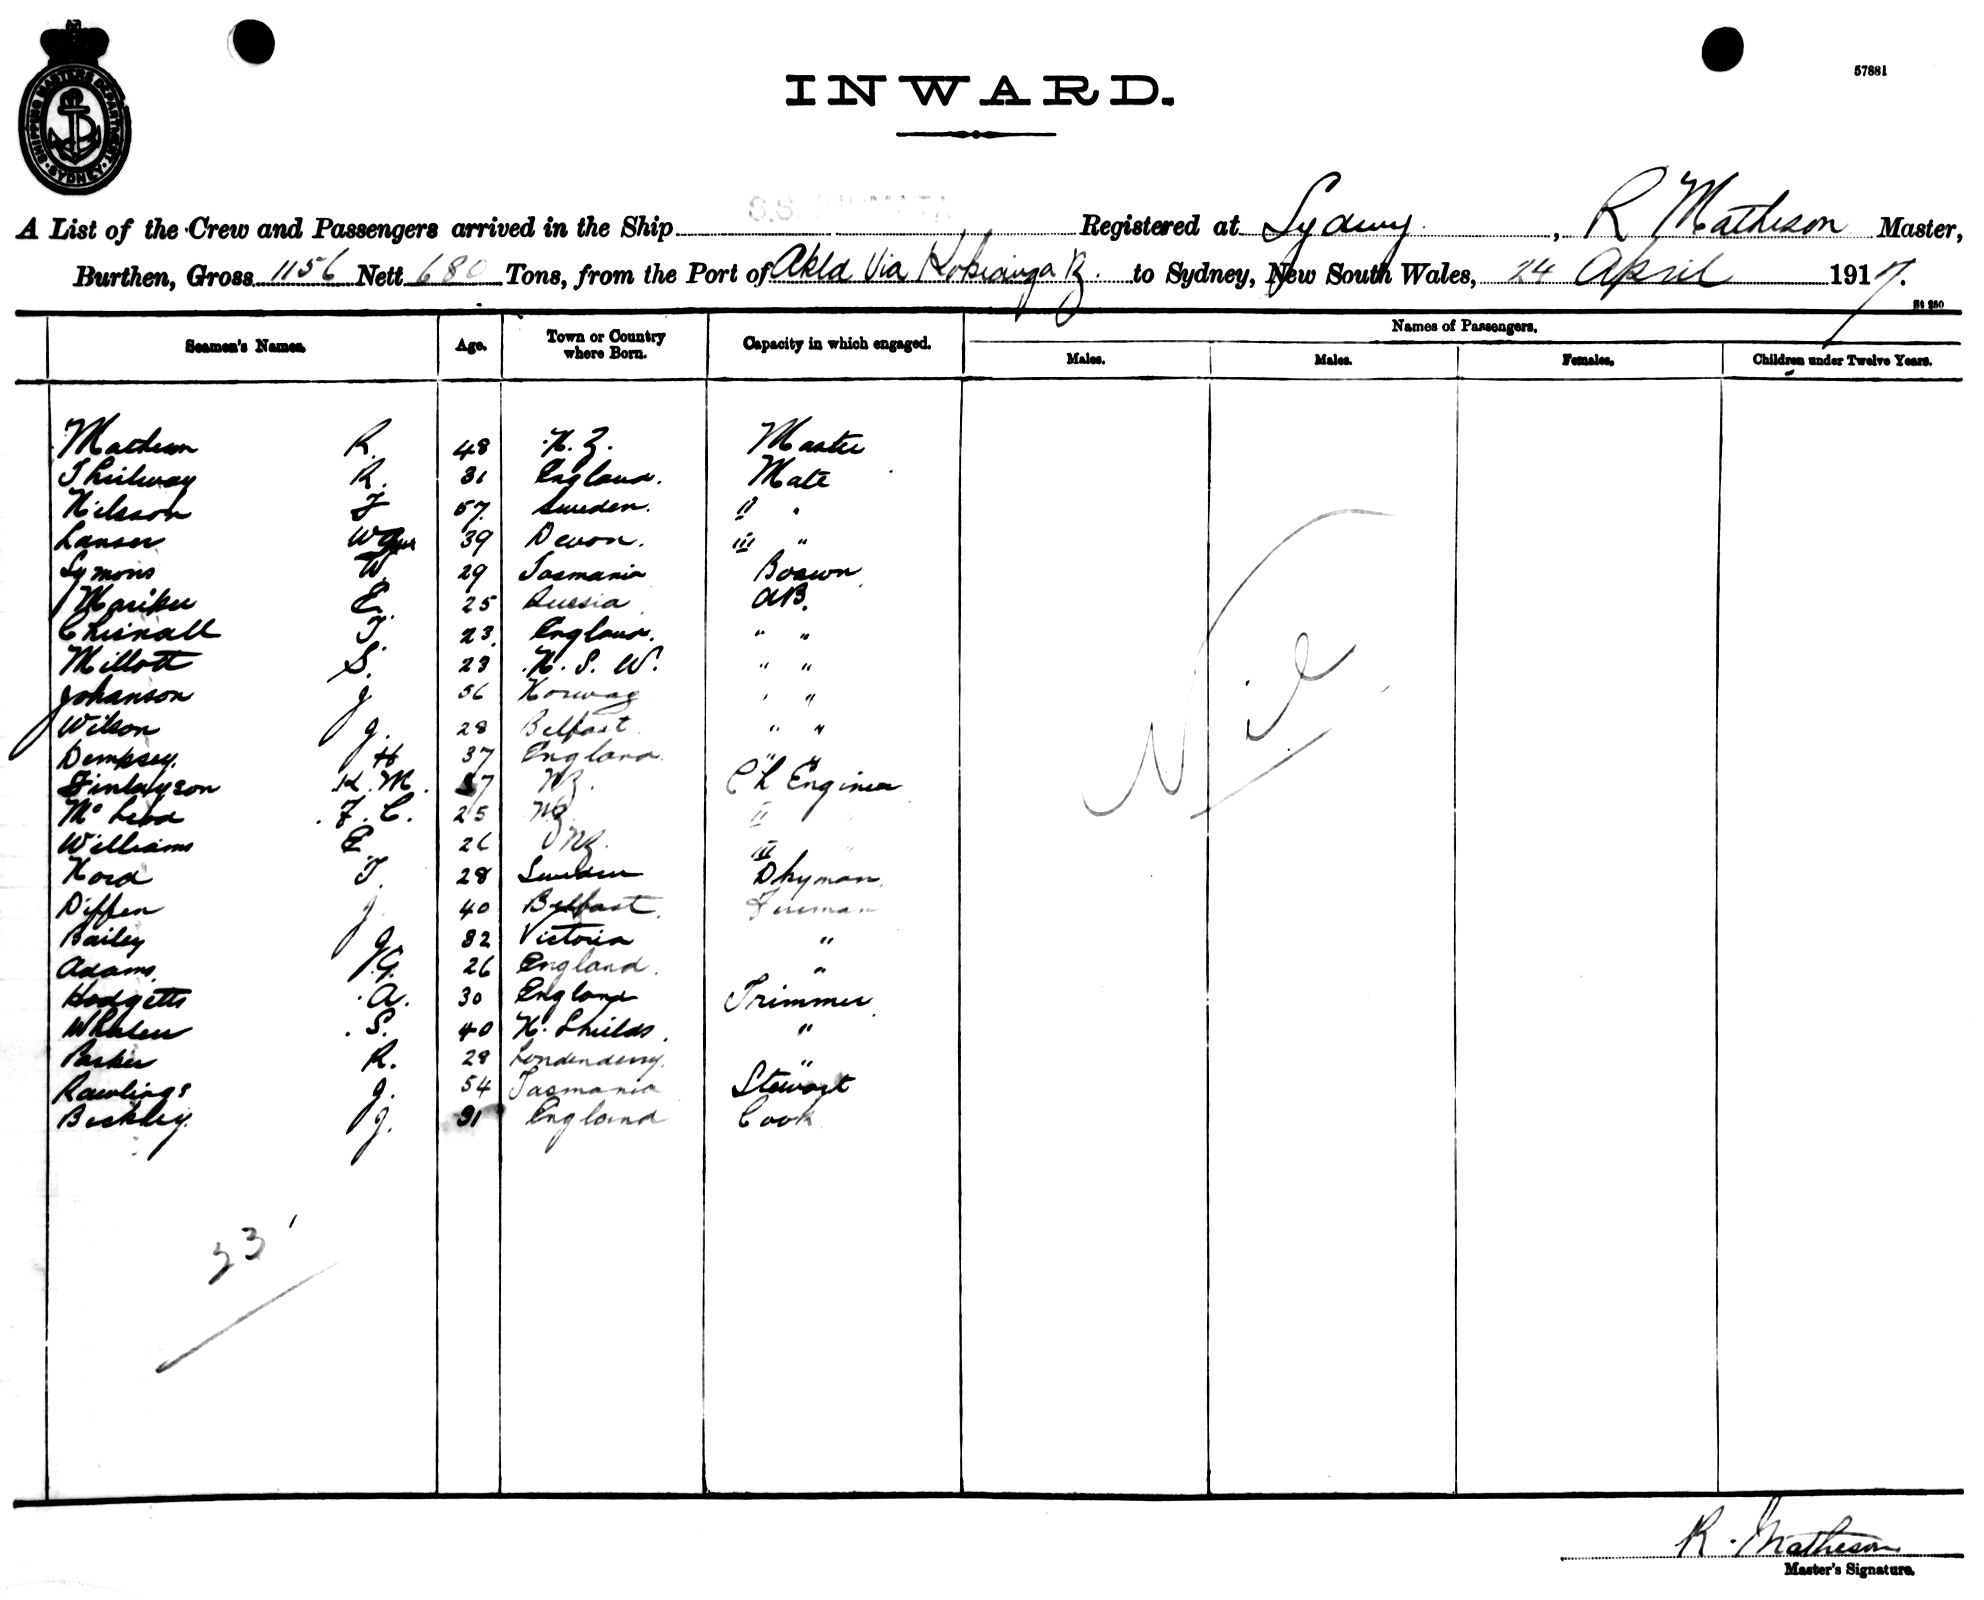 57881
INWARD.
SHIPPING MASTERS DEPARTMENT SYDNEY
A List of the Crew and Passengers arrived in the Ship S.S. Registered at Sydney, R Matheson Master,
Burthen, Gross 1156 Nett 680 Tons, from the Port of Akld Via Hokianga to Sydney, New South Wales, 24 April 1917.
St 250
Seamen's Names. Age. Town or Country where Born. Capacity in which engaged. Names of Passengers.
Males. Males. Females. Children under Twelve Years.
Matheson R. 48 N.Z. Master
R. 31 England. Mate
Nilsson F 57. Sweden. II "
Lanser 39 Devon. III "
Symons W. 29 Tasmania Boswn
E. 25 Russia AB.
Chisnall T. 23. England. " "
Millott S. 23 N.S.W. " "
Johanson J 56 Norway " "
Wilson J. 28 Belfast " "
Dempsey. H 37 England. " "
Finlayson K.M. 37 NZ. Ch Engineer
McLeod F.C. 25 NZ II
Williams E. 26 NZ. III "
Nord T. 28 Sweden Dkyman.
Diffen J. 40 Belfast. Fireman
Bailey J. 32 Victoria "
Adams. G. 26 England. "
Hodgetts A. 30 England Trimmer.
Whalen S. 40 N. Shields. "
Parker R. 28 Londenderry. "
Rawlings J. 54 Tasmania Stewart
Beckley. J. 31 England Cook
Nil
23
R. Matheson
Master's Signature.